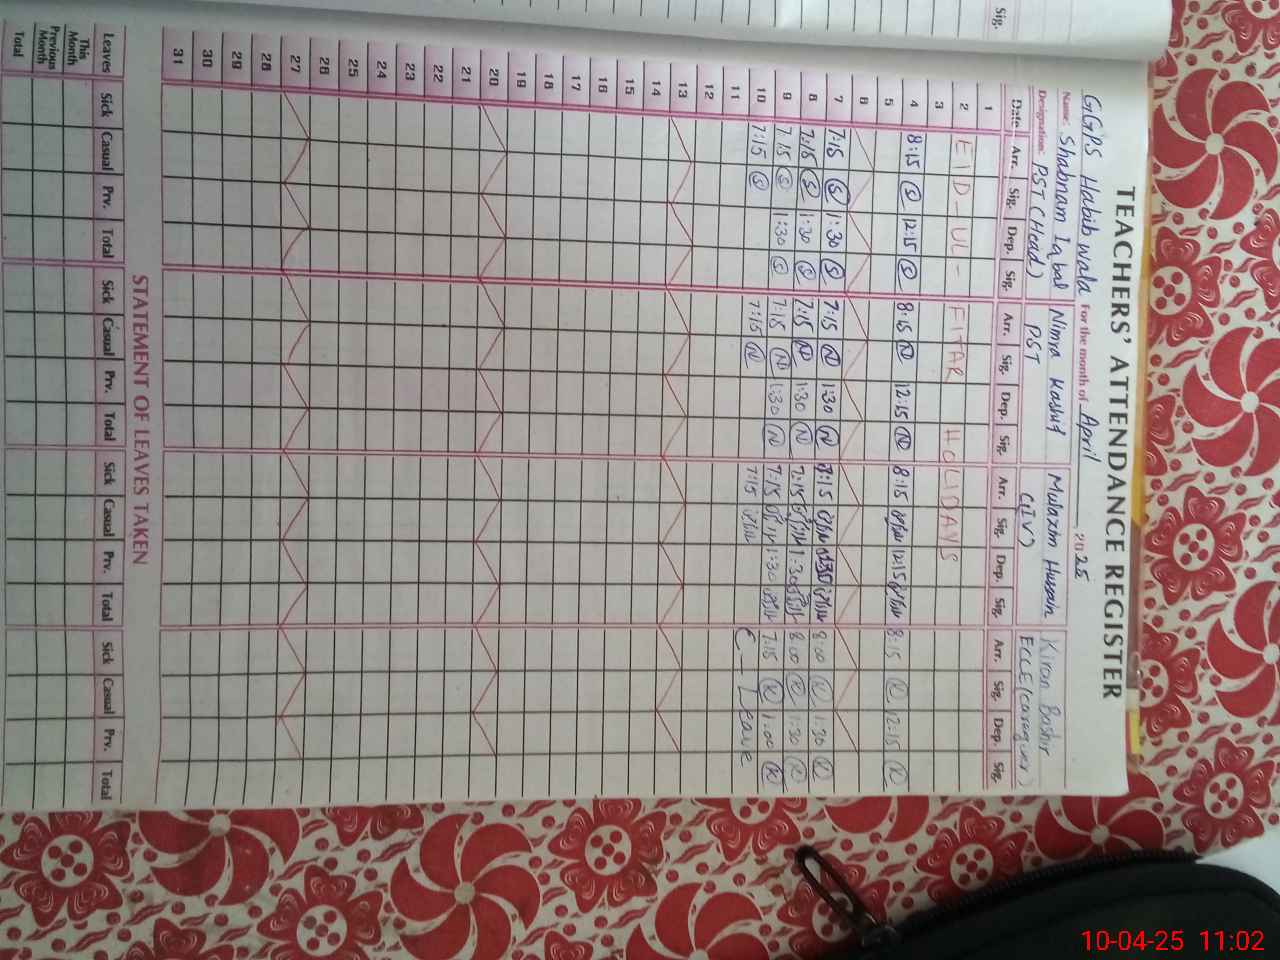 Sig.
TEACHERS' ATTENDANCE REGISTER
GGPS Habib wala For the month of April 2025
Name: Shabnam Iqbal Nimra Kashif Mulazim Hussain Kiran Bashir
Designation: PST (Head) PST C(IV) ECCE (Caregiver)
Date Arr. Sig. Dep. Sig. Arr. Sig. Dep. Sig. Arr. Sig. Dep. Sig. Arr. Sig. Dep. Sig.
1
2 EID-UL-FITAR HOLIDAYS
3
4 8:15 S 12:15 S 8:15 N 12:15 N 8:15 12:15 8:15 K 12:15 K
5
6
7 7:15 S 1:30 S 7:15 N 1:30 N :15 1:30 8:00 K 1:30 K
8 7:15 S 1:30 S 7:15 N 1:30 N 7:15 1:30 8:00 K 1:30 K
9 7:15 S 1:30 S 7:15 N 1:30 N 7:15 1:30 7:15 K 1:00 K
10 7:15 S 7:15 N 7:15 C-Leave
11
12
13
14
15
16
17
18
19
20
21
22
23
24
25
26
27
28
29
30
31
STATEMENT OF LEAVES TAKEN
Leaves Sick Casual Prv. Total Sick Casual Prv. Total Sick Casual Prv. Total Sick Casual Prv. Total
This Month
Previous Month
Total
10-04-25 11:02